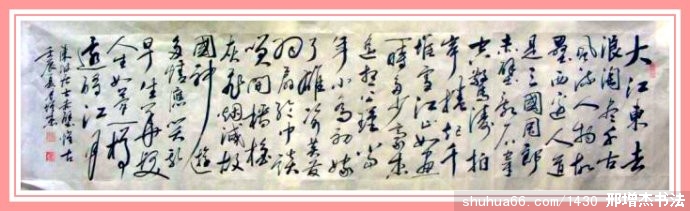 大江東去
浪淘盡千古
風流人物故
壘西邊人道
是三國周郎
赤壁亂石穿
空驚濤拍
岸捲起千
堆雪江山如畫
一時多少豪傑
遙想公瑾當
年小喬初嫁
了雄姿英發
羽扇綸巾談
笑間檣櫓
灰飛煙滅故
國神遊
多情應笑我
早生華髮
人生如夢一樽
還酹江月
赤壁懷古
壬辰
shuhua66.com/1430 邢增杰书法